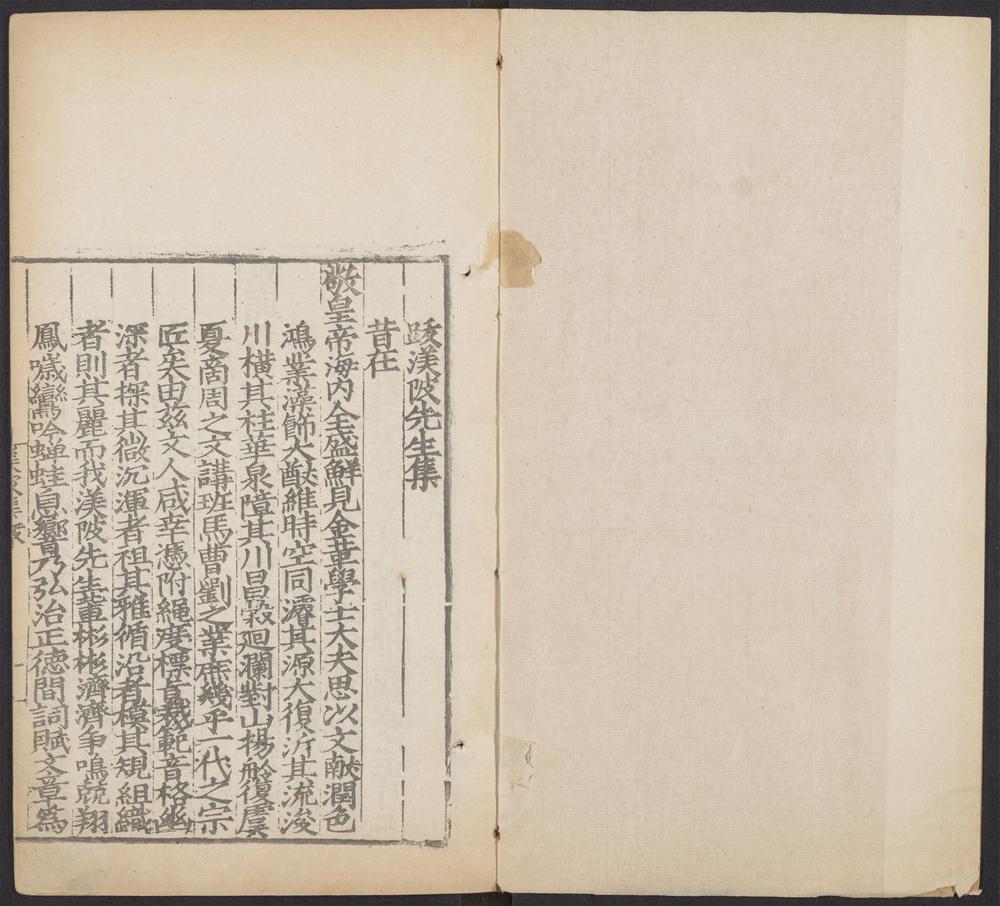 跋渼陂先生集
昔在
敬皇帝海内全盛鮮見金革學士大夫思以文猷潤色
鴻業藻餙大猷維時空同濬其源大復泝其流浚
川橫其柱華泉障其川昌穀廻瀾對山揚舲復虞
夏商周之文講班馬曹劉之業庶幾乎一代之宗
匠矣由兹文人咸幸憑附繩度標㫖裁範音格幽
深者探其微沉渾者祖其雅循沿者模其規組織
者則其麗而我渼陂先生軰彬彬濟濟爭鳴兢翔
鳳噦鸞吟蟬蛙息響乃弘治正徳間詞賦文章爲